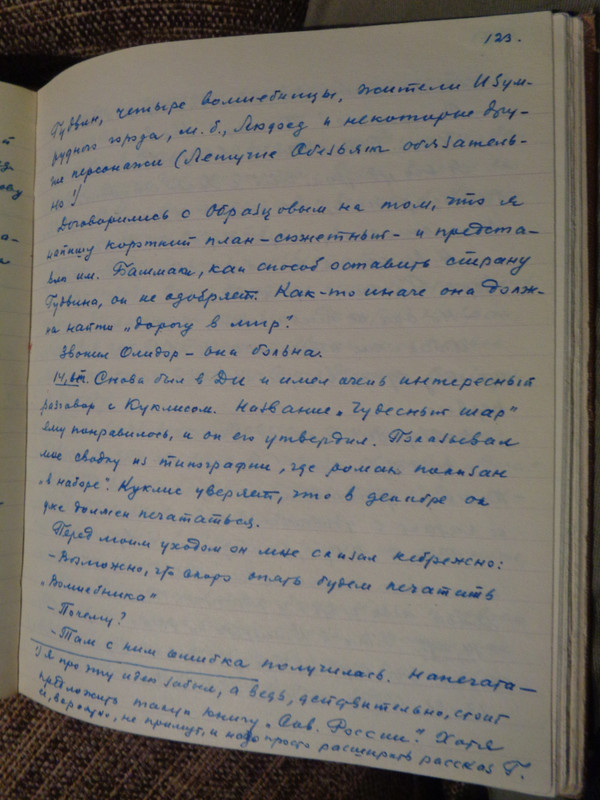 123.
Гудвин, четыре волшебницы, жители Изум-
рудного города, м. б., Людоед и некоторые дру-
гие персонажи (Летучие Обезьяны обязатель-
но!)
Договорились с Образцовым на том, что я
напишу короткий план-сюжетный- и предста-
влю им. Башмаки, как способ оставить страну
Гудвина, он не одобряет. Как-то иначе она долж-
на найти „дорогу в мир".
Звонил Олидор - она больна.
14, вт. Снова был в ДИ и имел очень интересный
разговор с Куклисом. Название „Чудесный шар"
ему понравилось, и он его утвердил. Показывал
мне сводку из типографии, где роман показан
„в наборе". Куклис уверяет, что в декабре он
уже должен печататься.
Перед моим уходом он мне сказал небрежно:
- Возможно, что скоро опять будем печатать
„Волшебника"
- Почему?
- Там с ним ошибка получилась. Напечата-
Я про эту идею забыл, а ведь, действительно, стоит
предложить такую книгу „Сов. России". Хотя
и, вероятно, не примут, и надо просто расширить рассказ Г.